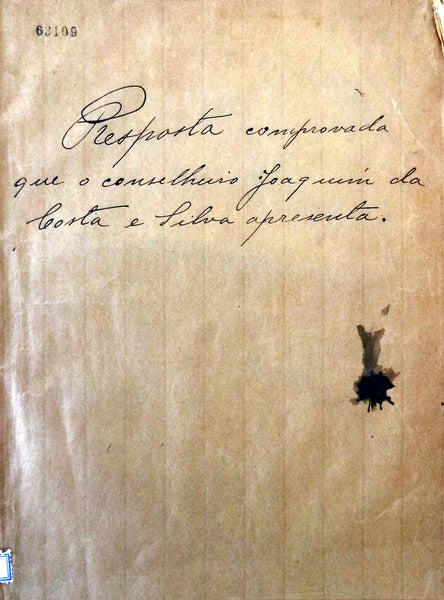 63109
Resposta comprovada
que o conselheiro Joaquim da
Costa e Silva apresenta.